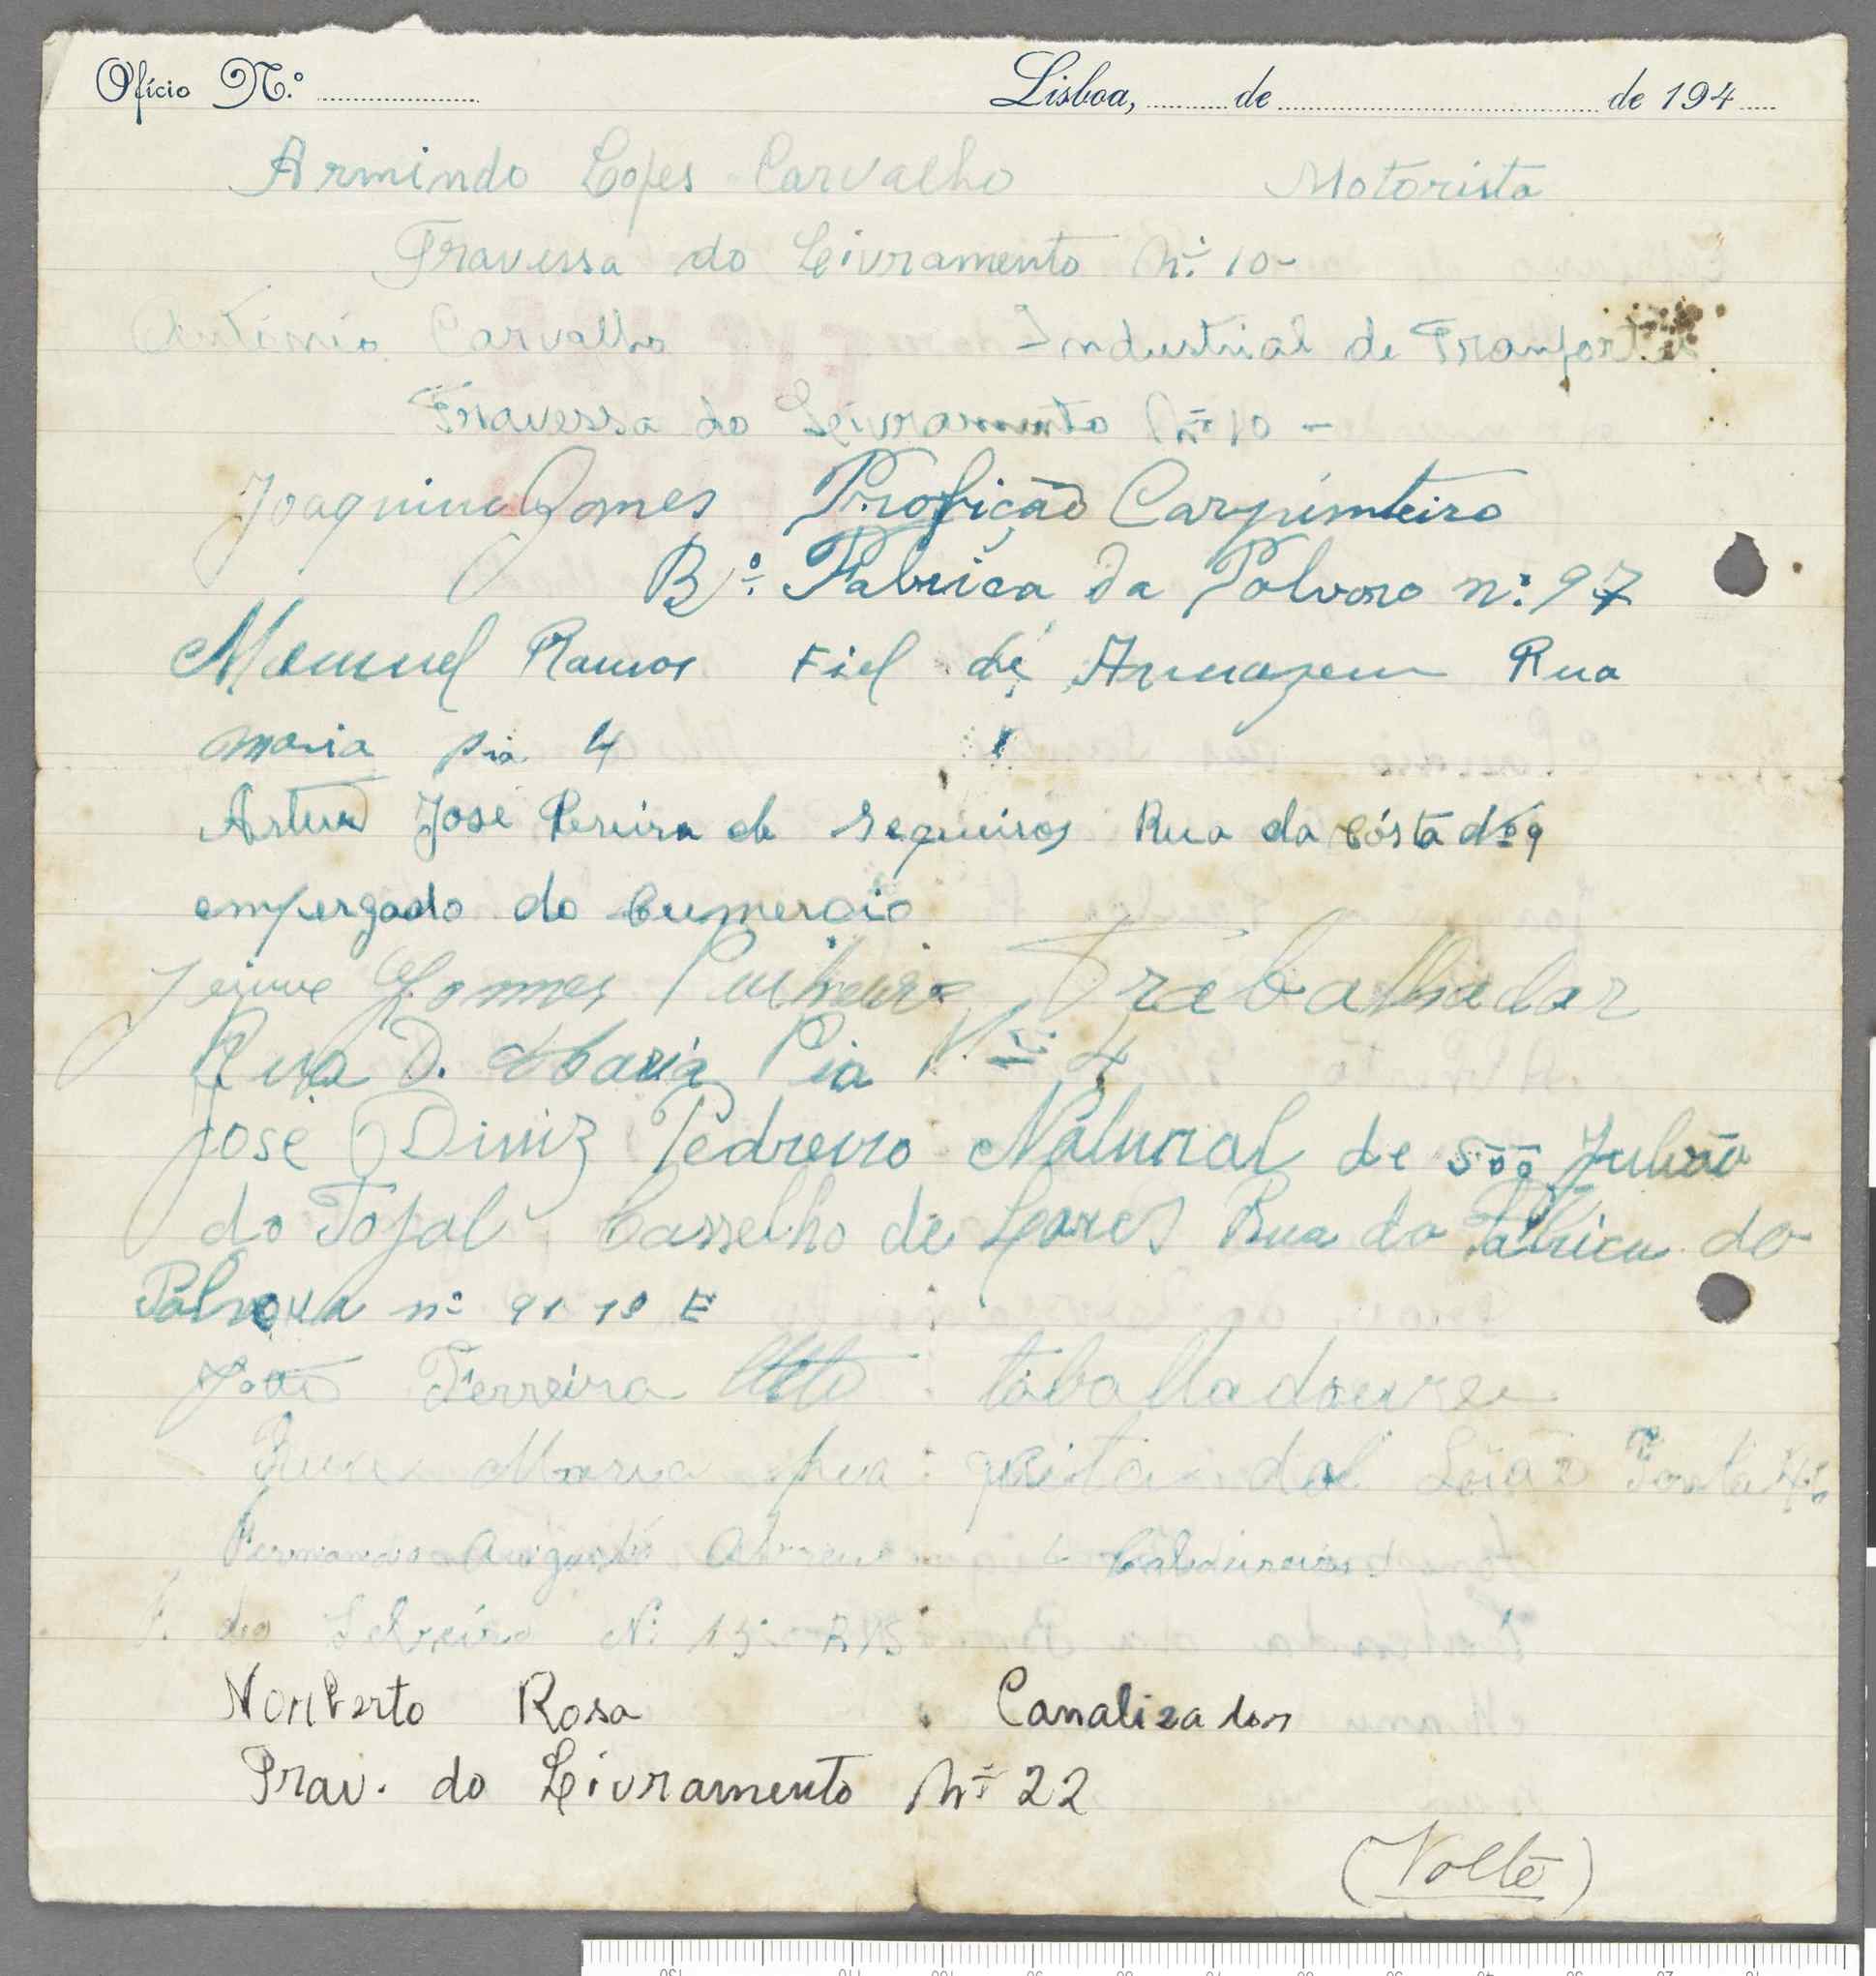 Ofício N.º Lisboa, de de 194
Armindo Lopes Carvalho Motorista
Travessa do Livramento Nº 10-
António Carvalho Industrial de Tranportes
Travessa do Livramento Nº 10 -
Joaquim Gomes Profição Carpimteiro
Bº. Fabrica da Polvora nº: 97
Manuel Ramos Fiel de Armazem Rua
maria pia 4
Artur José Pereira de Sequeiros Rua da Cósta nº 9
empergado do Cumercio
Jaime Gomes Trabalhador
Rua D. Maria Pia Nº 4
José Diniz Pedreiro Natural de São Julião
do Tojal Casselho de Loares Rua da Fabrica da
Polvora nº 91 1º E
João Ferreira taballadoure
Rua Maria pia Porta Nº
Fernando Augusto Caldeireiro
do Nº 15- R/C
Norberto Rosa Canalizador
Trav. do Livramento Nº 22
(Volte)